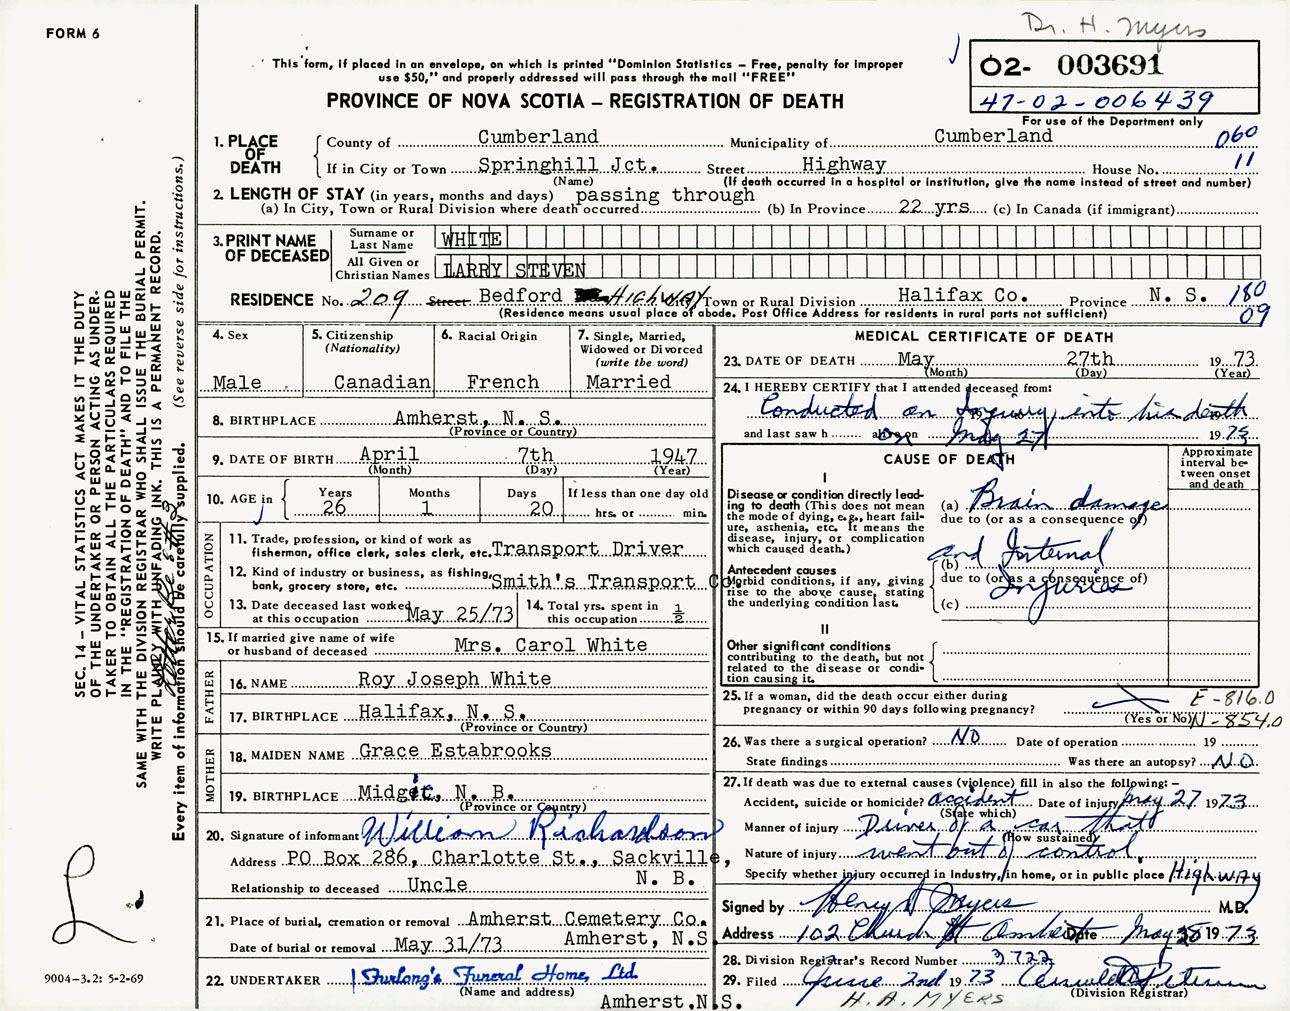 FORM 6
Dr. H. Myers
This form, if placed in an envelope, on which is printed "Dominion Statistics – Free, penalty for improper
use $50," and properly addressed will pass through the mail "FREE"
02- 003691
47-02-006439
For use of the Department only
PROVINCE OF NOVA SCOTIA – REGISTRATION OF DEATH
1. PLACE OF DEATH
County of Cumberland Municipality of Cumberland 060
If in City or Town Springhill Jct. Street Highway House No. 11
(Name) (If death occurred in a hospital or institution, give the name instead of street and number)
2. LENGTH OF STAY (in years, months and days) passing through
(a) In City, Town or Rural Division where death occurred (b) In Province 22 yrs (c) In Canada (if immigrant)
3. PRINT NAME OF DECEASED
Surname or Last Name WHITE
All Given or Christian Names LARRY STEVEN
RESIDENCE No. 209 Street Bedford Highway Town or Rural Division Halifax Co. Province N. S. 180
09
(Residence means usual place of abode. Post Office Address for residents in rural parts not sufficient)
4. Sex
Male
5. Citizenship
(Nationality)
Canadian
6. Racial Origin
French
7. Single, Married,
Widowed or Divorced
(write the word)
Married
8. BIRTHPLACE Amherst, N. S.
(Province or Country)
9. DATE OF BIRTH April 7th 1947
(Month) (Day) (Year)
10. AGE in
Years Months Days If less than one day old
26 1 20 hrs. or min.
OCCUPATION
11. Trade, profession, or kind of work as
fisherman, office clerk, sales clerk, etc. Transport Driver
12. Kind of industry or business, as fishing,
bank, grocery store, etc. Smith's Transport Co.
13. Date deceased last worked
at this occupation May 25/73
14. Total yrs. spent in
this occupation ½
15. If married give name of wife
or husband of deceased Mrs. Carol White
FATHER
16. NAME Roy Joseph White
17. BIRTHPLACE Halifax, N. S.
(Province or Country)
MOTHER
18. MAIDEN NAME Grace Estabrooks
19. BIRTHPLACE Midgic, N. B.
(Province or Country)
20. Signature of informant William Richardson
Address PO Box 286, Charlotte St., Sackville,
N. B.
Relationship to deceased Uncle
21. Place of burial, cremation or removal Amherst Cemetery Co.
Date of burial or removal May 31/73 Amherst, N.S.
22. UNDERTAKER Furlong's Funeral Home, Ltd.
(Name and address)
Amherst.N.S.
MEDICAL CERTIFICATE OF DEATH
23. DATE OF DEATH May 27th 1973
(Month) (Day) (Year)
24. I HEREBY CERTIFY that I attended deceased from:
Conducted an Inquiry into his death
and last saw h alive on on May 27 1973
CAUSE OF DEATH
Approximate
interval be-
tween onset
and death
I
Disease or condition directly lead-
ing to death (This does not mean
the mode of dying, e.g., heart fail-
ure, asthenia, etc. It means the
disease, injury, or complication
which caused death.)
(a) Brain damage
due to (or as a consequence of)
and Internal
Antecedent causes
Morbid conditions, if any, giving
rise to the above cause, stating
the underlying condition last.
(b)
due to (or as a consequence of)
Injuries
(c)
II
Other significant conditions
contributing to the death, but not
related to the disease or condi-
tion causing it.
25. If a woman, did the death occur either during
pregnancy or within 90 days following pregnancy?
(Yes or No)
E-816.0
N-854.0
26. Was there a surgical operation? NO Date of operation 19
State findings Was there an autopsy? N.O.
27. If death was due to external causes (violence) fill in also the following: –
Accident, suicide or homicide? accident Date of injury May 27 1973
(State which)
Manner of injury Driver of a car that
(How sustained)
Nature of injury went out of control.
Specify whether injury occurred in Industry, in home, or in public place Highway
Signed by Henry A Myers M.D.
Address 102 Church St Amherst Date May 1973
28. Division Registrar's Record Number 3722
29. Filed June 2nd 1973
(Division Registrar)
H. A. MYERS
SEC. 14 – VITAL STATISTICS ACT MAKES IT THE DUTY
OF THE UNDERTAKER OR PERSON ACTING AS UNDER-
TAKER TO OBTAIN ALL THE PARTICULARS REQUIRED
IN THE "REGISTRATION OF DEATH" AND TO FILE THE
SAME WITH THE DIVISION REGISTRAR WHO SHALL ISSUE THE BURIAL PERMIT.
WRITE PLAINLY WITH UNFADING INK. THIS IS A PERMANENT RECORD.
Every item of information should be carefully supplied. (See reverse side for instructions.)
L
9004–3.2: 5-2-69